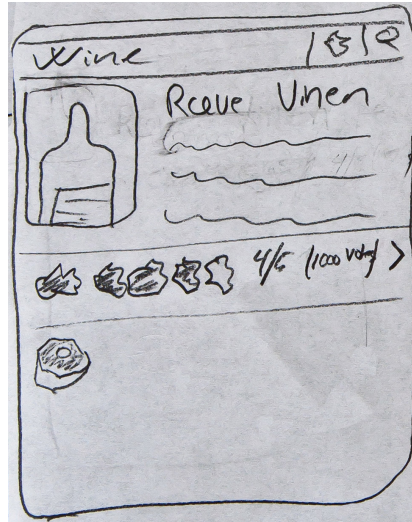 Wine
Reeve Vinen
4/5 (1000 votes) >